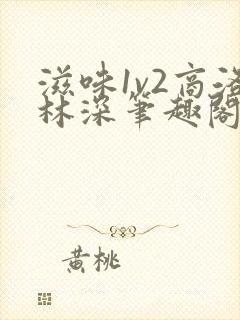 滋味1v2高洛
林深笔趣阁
黄桃